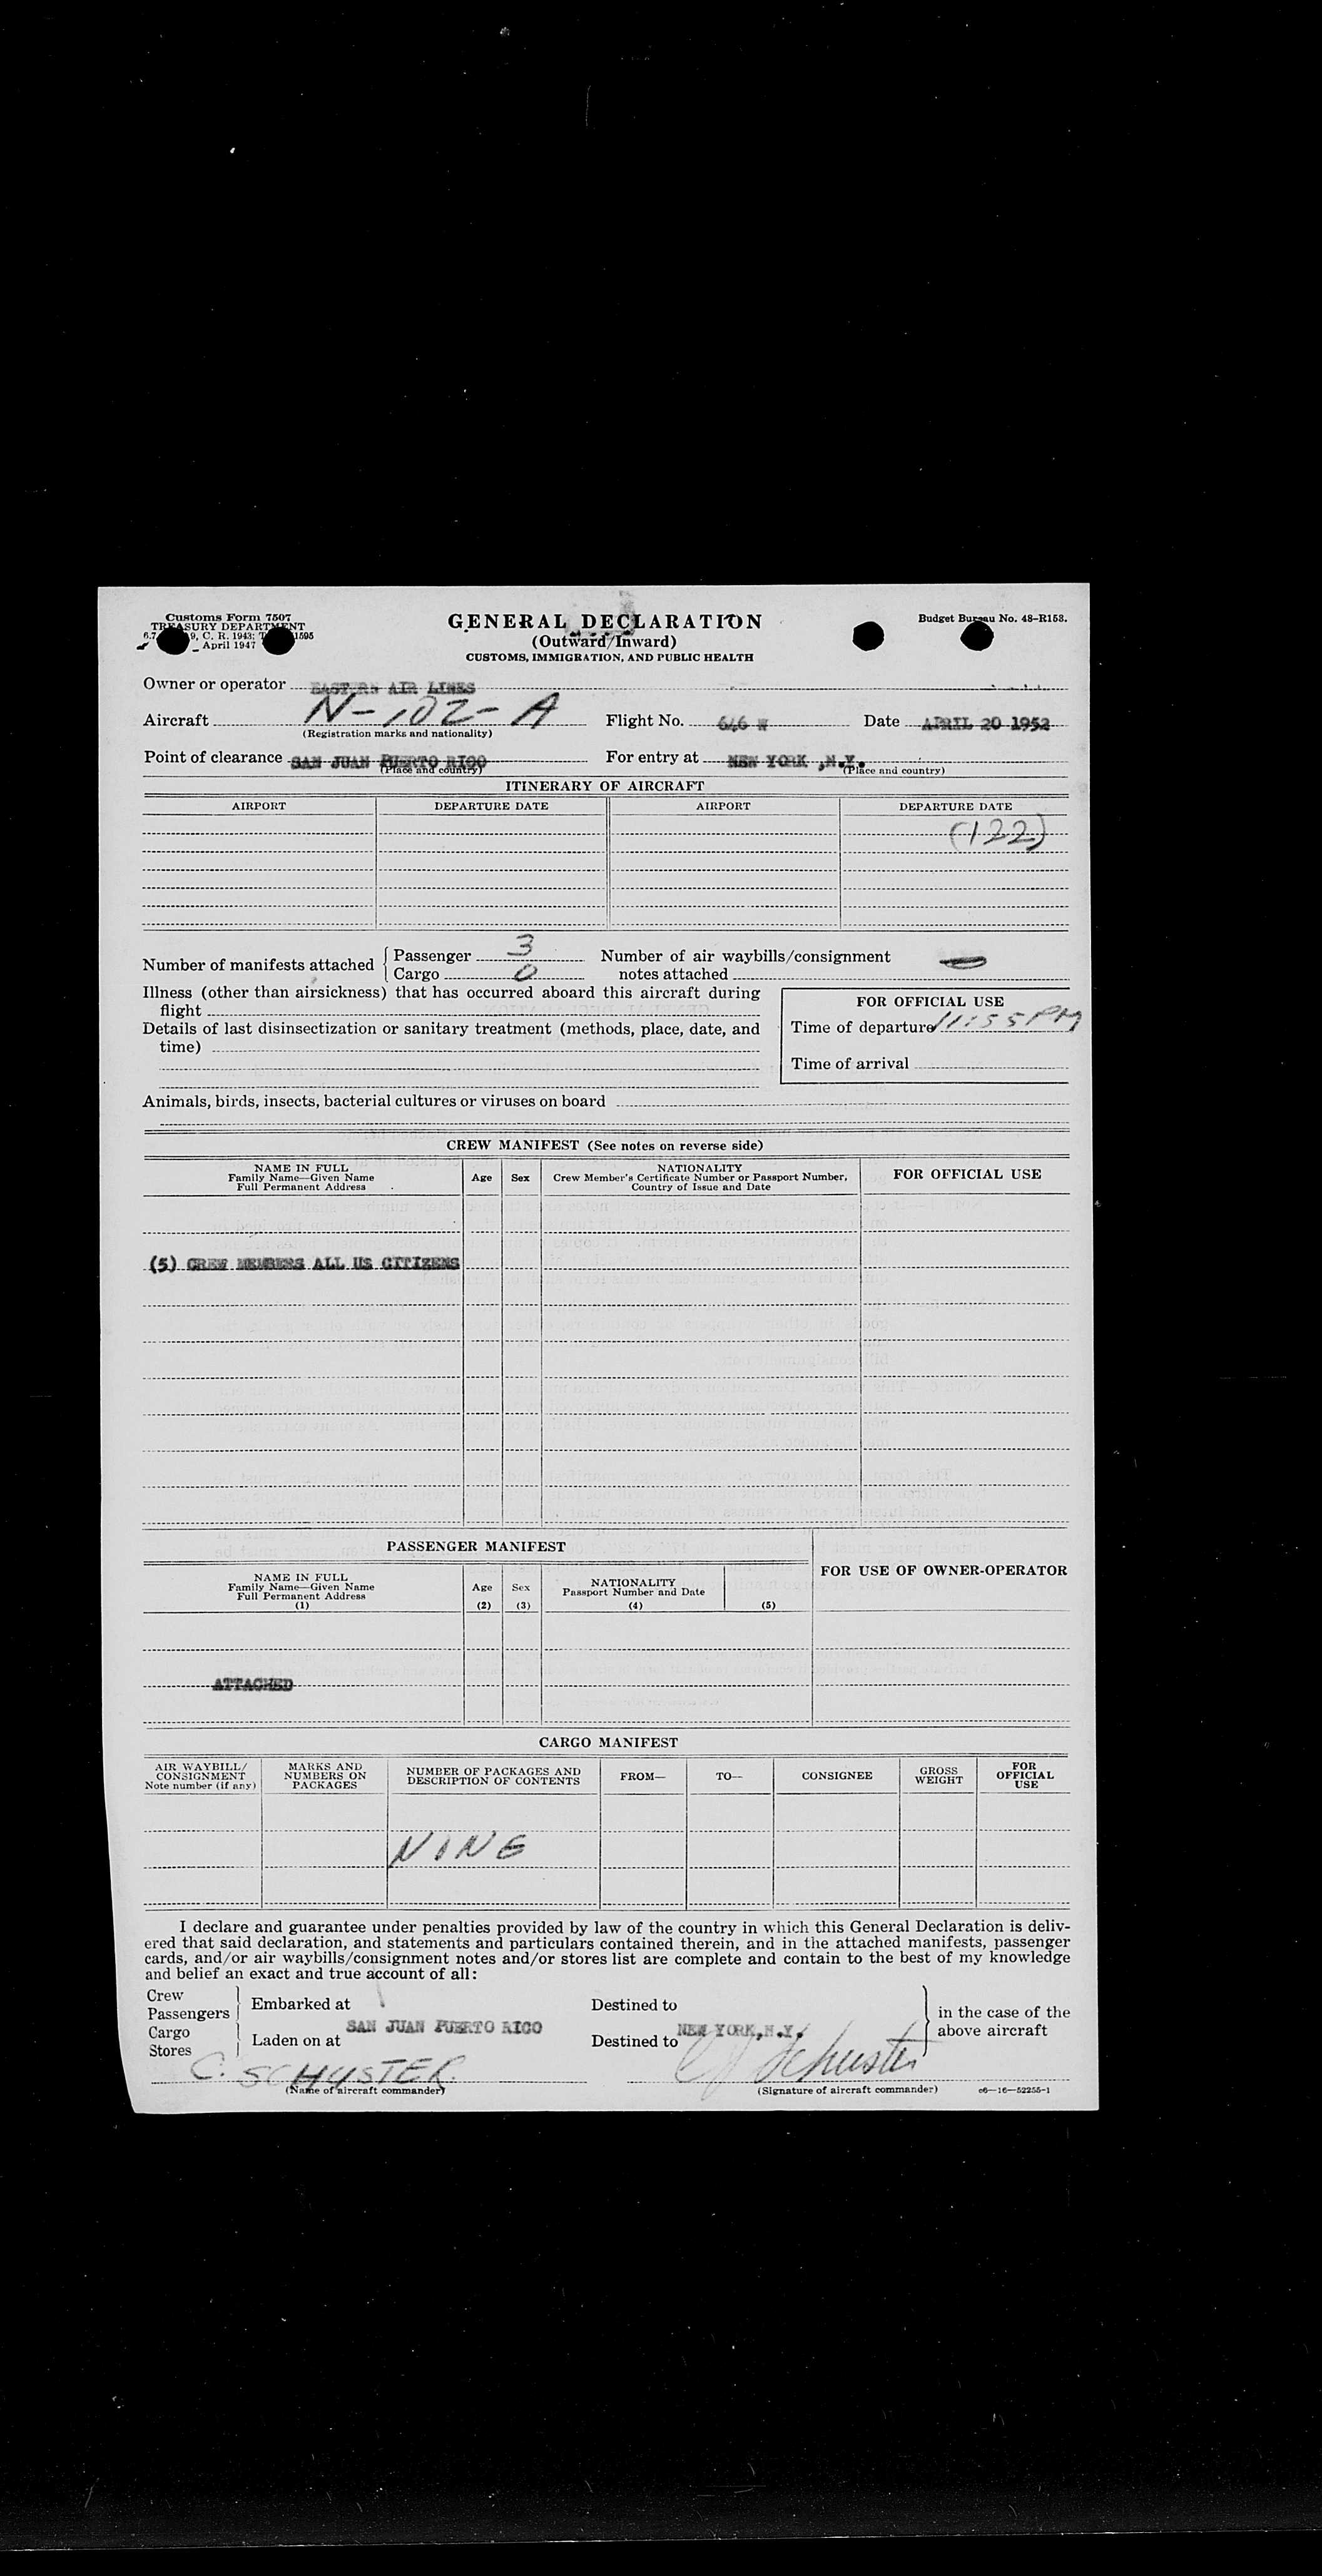 Customs Form 7507
TREASURY DEPARTMENT
9, C. R. 1943; 1595
April 1947
GENERAL DECLARATION
(Outward/Inward)
CUSTOMS, IMMIGRATION, AND PUBLIC HEALTH
Budget Bureau No. 48-R158.
Owner or operator EASTERN AIR LINES
Aircraft N-102-A Flight No. 646 W Date APRIL 20 1952
(Registration marks and nationality)
Point of clearance SAN JUAN PUERTO RICO For entry at NEW YORK ,N.Y.
(Place and country) (Place and country)
ITINERARY OF AIRCRAFT
AIRPORT DEPARTURE DATE AIRPORT DEPARTURE DATE
(122)
Number of manifests attached { Passenger 3 Number of air waybills/consignment
Cargo 0 notes attached
Illness (other than airsickness) that has occurred aboard this aircraft during
flight
Details of last disinsectization or sanitary treatment (methods, place, date, and
time)
FOR OFFICIAL USE
Time of departure 11:55 PM
Time of arrival
Animals, birds, insects, bacterial cultures or viruses on board
CREW MANIFEST (See notes on reverse side)
NAME IN FULL
Family Name—Given Name
Full Permanent Address
Age Sex
NATIONALITY
Crew Member's Certificate Number or Passport Number,
Country of Issue and Date
FOR OFFICIAL USE
(5) CREW MEMBERS ALL US CITIZENS
PASSENGER MANIFEST
FOR USE OF OWNER-OPERATOR
NAME IN FULL
Family Name—Given Name
Full Permanent Address
(1)
Age
(2)
Sex
(3)
NATIONALITY
Passport Number and Date
(4)
(5)
ATTACHED
CARGO MANIFEST
AIR WAYBILL/
CONSIGNMENT
Note number (if any)
MARKS AND
NUMBERS ON
PACKAGES
NUMBER OF PACKAGES AND
DESCRIPTION OF CONTENTS
FROM—
TO—
CONSIGNEE
GROSS
WEIGHT
FOR
OFFICIAL
USE
NINE
I declare and guarantee under penalties provided by law of the country in which this General Declaration is deliv-
ered that said declaration, and statements and particulars contained therein, and in the attached manifests, passenger
cards, and/or air waybills/consignment notes and/or stores list are complete and contain to the best of my knowledge
and belief an exact and true account of all:
Crew
Passengers
Cargo
Stores
Embarked at
Laden on at SAN JUAN PUERTO RICO
Destined to
Destined to NEW YORK,N.Y.
in the case of the
above aircraft
C. SCHUSTER
(Name of aircraft commander)
C Schuster
(Signature of aircraft commander)
c6—16—52255-1